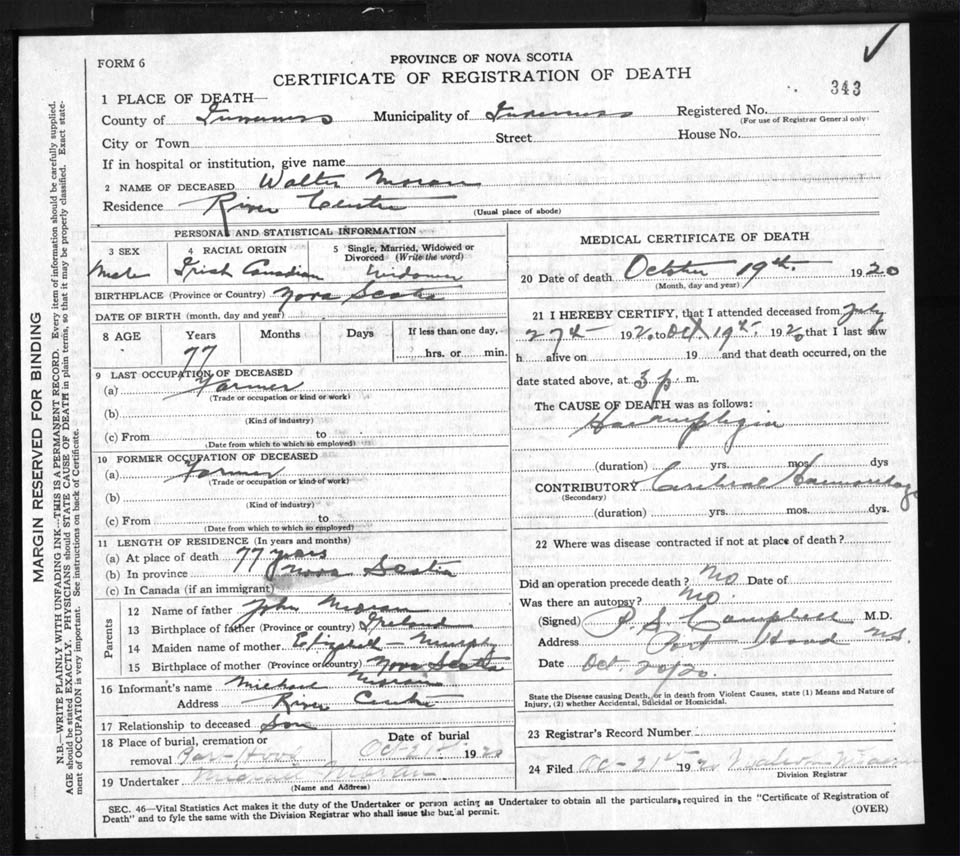 FORM 6
PROVINCE OF NOVA SCOTIA
CERTIFICATE OF REGISTRATION OF DEATH
343
1 PLACE OF DEATH—
County of Inverness Municipality of Inverness Registered No.
(For use of Registrar General only)
City or Town Street House No.
If in hospital or institution, give name
2 NAME OF DECEASED Walter Moran
Residence River Centre
(Usual place of abode)
PERSONAL AND STATISTICAL INFORMATION
3 SEX 4 RACIAL ORIGIN 5 Single, Married, Widowed or Divorced (Write the word)
Male Irish Canadian Widower
BIRTHPLACE (Province or Country) Nova Scotia
DATE OF BIRTH (month, day and year)
8 AGE Years Months Days If less than one day,
77 hrs. or min.
9 LAST OCCUPATION OF DECEASED
(a) Farmer
(Trade or occupation or kind or work)
(b)
(Kind of industry)
(c) From to
(Date from which to which so employed)
10 FORMER OCCUPATION OF DECEASED
(a) Farmer
(Trade or occupation or kind of work)
(b)
(Kind of industry)
(c) From to
(Date from which to which so employed)
11 LENGTH OF RESIDENCE (In years and months)
(a) At place of death 77 years
(b) In province Nova Scotia
(c) In Canada (if an immigrant)
Parents
12 Name of father John Moran
13 Birthplace of father (Province or country) Ireland
14 Maiden name of mother Elizabeth Murphy
15 Birthplace of mother (Province or country) Nova Scotia
16 Informant's name Michael Moran
Address River Centre
17 Relationship to deceased Son
18 Place of burial, cremation or removal Port Hood Date of burial Oct 21st 1920
19 Undertaker Michael Moran
(Name and Address)
MEDICAL CERTIFICATE OF DEATH
20 Date of death October 19th 1920
(Month, day and year)
21 I HEREBY CERTIFY, that I attended deceased from July
27th 1920 to Oct 19th 1920 that I last saw
h alive on 19 and that death occurred, on the
date stated above, at 3 p. m.
The CAUSE OF DEATH was as follows:
(duration) yrs. mos. dys
CONTRIBUTORY Cerebral Haemorrhage
(Secondary)
(duration) yrs. mos. dys.
22 Where was disease contracted if not at place of death?
Did an operation precede death? No Date of
Was there an autopsy? No.
(Signed) Campbell M.D.
Address Port Hood N.S.
Date Oct 20/20.
State the Disease causing Death, or in death from Violent Causes, state (1) Means and Nature of
Injury, (2) whether Accidental, Suicidal or Homicidal.
23 Registrar's Record Number
24 Filed Oct-21st 1920
Division Registrar
SEC. 46—Vital Statistics Act makes it the duty of the Undertaker or person acting as Undertaker to obtain all the particulars, required in the "Certificate of Registration of
Death" and to fyle the same with the Division Registrar who shall issue the burial permit. (OVER)
MARGIN RESERVED FOR BINDING
N.B.—WRITE PLAINLY WITH UNFADING INK—THIS IS A PERMANENT RECORD. Every item of information should be carefully supplied.
AGE should be stated EXACTLY. PHYSICIANS should STATE CAUSE OF DEATH in plain terms, so that it may be properly classified. Exact state-
ment of OCCUPATION is very important. See instructions on back of Certificate.